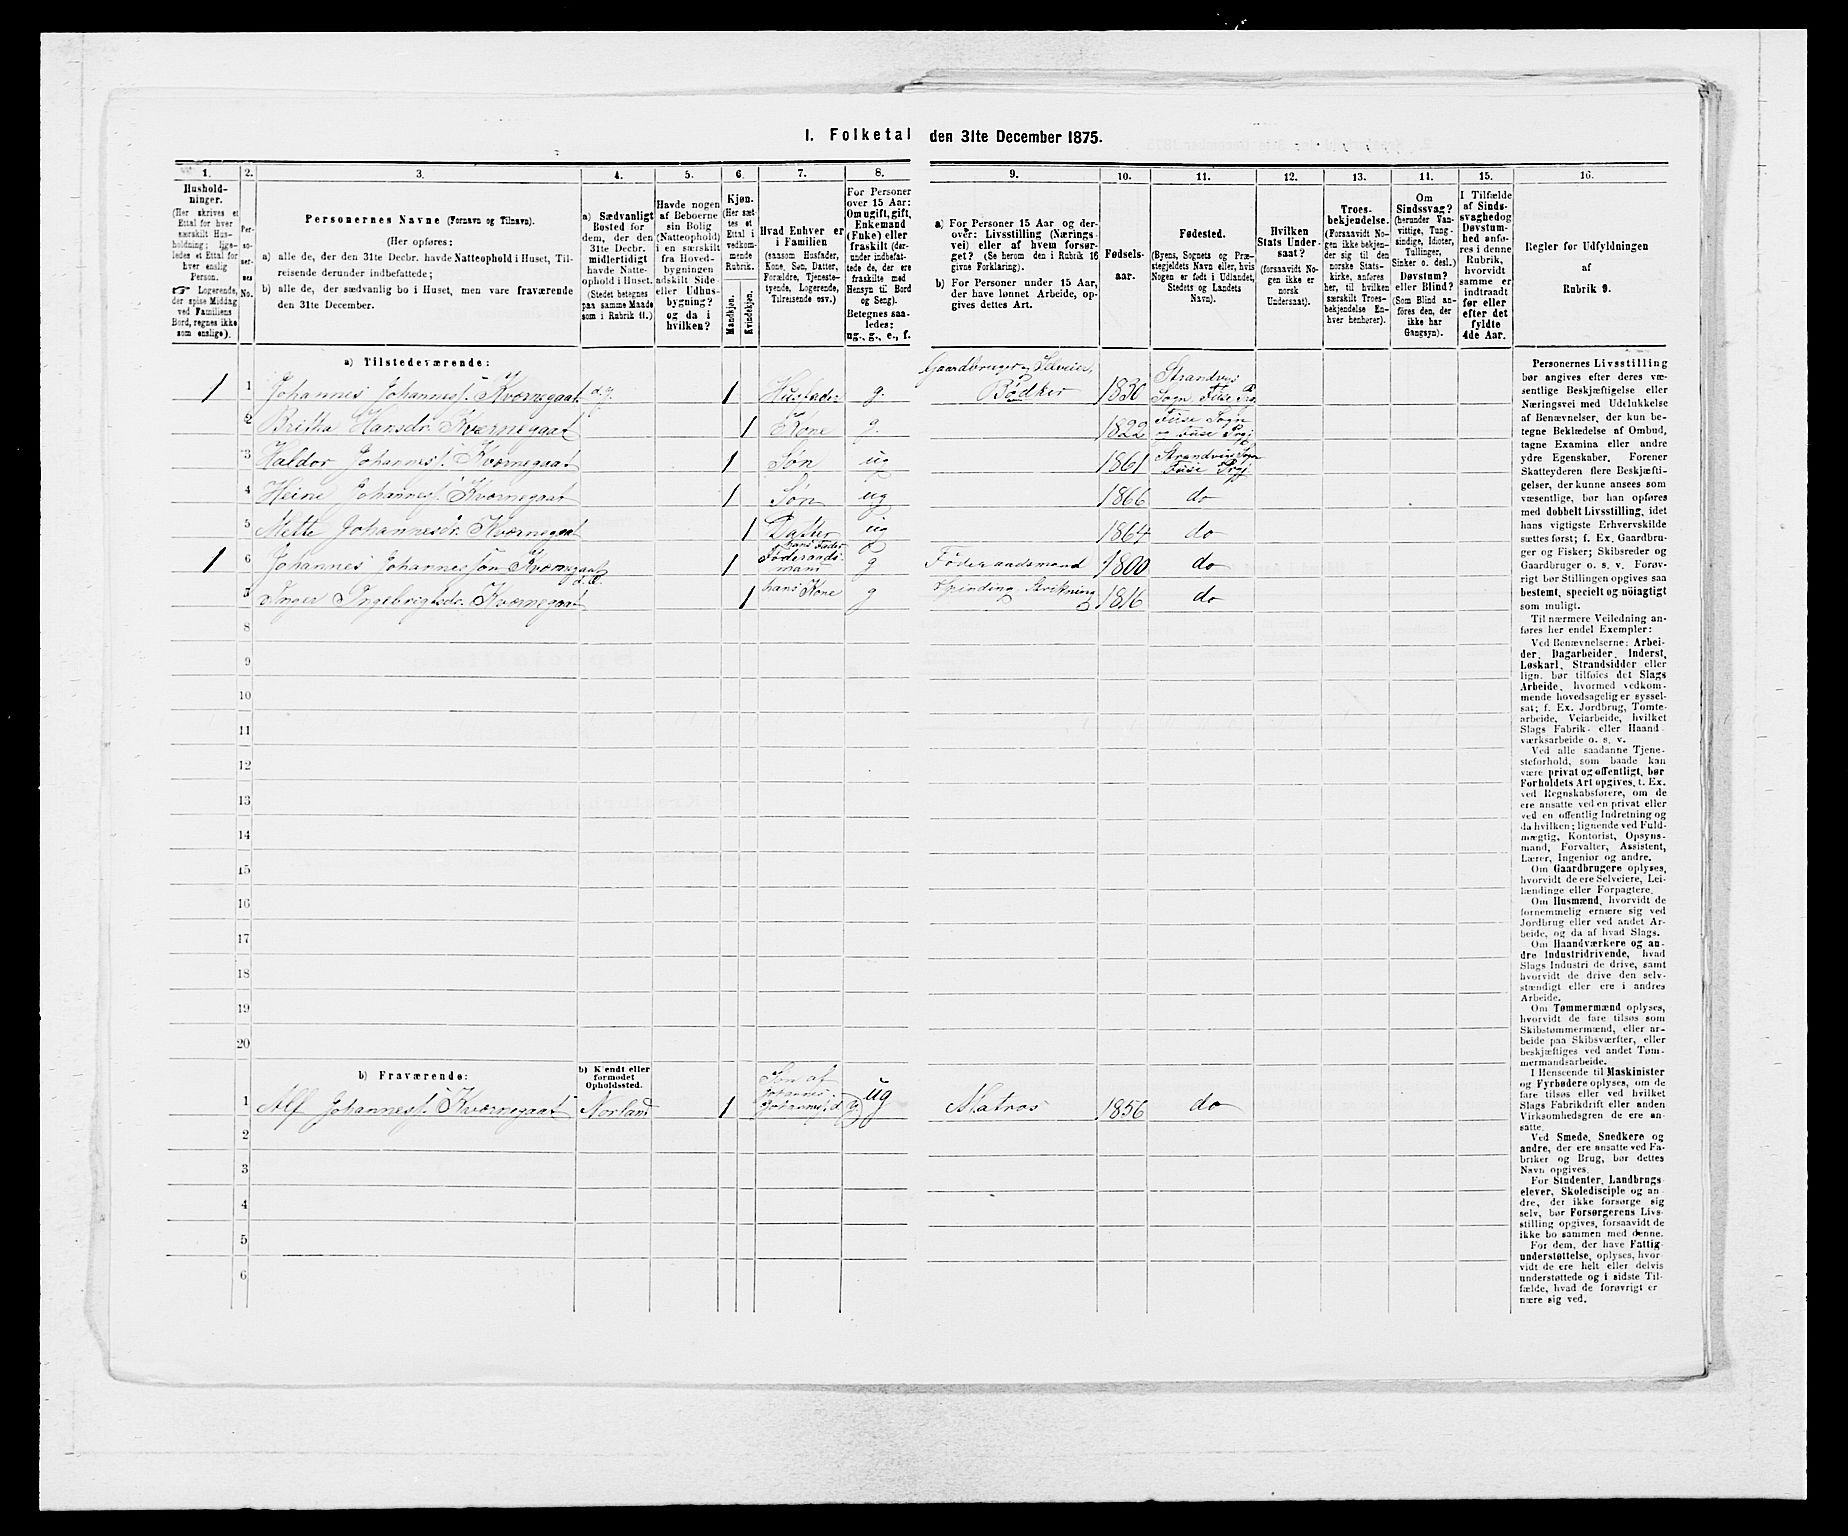 I. Folketal den 31te December 1875.
1. 2. 3. 4. 5. 6. 7. 8. 9. 10. 11. 12. 13. 14. 15. 16.
Hushold-
ninger.
(Her skrives et
Ettal for hver
særskilt Hus-
holdning; lige-
ledes et Ettal for
hver enslig
Person.
☞ Logerende,
der spise Middag
ved Familiens
Bord, regnes ikke
som enslige).
Per-
so-
ner-
nes
No.
Personernes Navne (Fornavn og Tilnavn).
(Her opføres:
a) alle de, der den 31te Decbr. havde Natteophold i Huset, Til-
reisende derunder indbefattede;
b) alle de, der sædvanlig bo i Huset, men vare fraværende
den 31te December.
a) Sædvanligt
Bosted for
dem, der den
31te Decbr.
midlertidigt
havde Natte-
ophold i Huset.
(Stedet betegnes
paa samme Maade
som i Rubrik 11.)
Havde nogen
af Beboerne
sin Bolig
(Natteophold)
i en særskilt
fra Hoved-
bygningen
adskilt Side-
eller Udhus-
bygning?
og da i
hvilken?
Kjøn.
(Her sæt-
tes et
Ettal i
vedkom-
mende
Rubrik.
Mandkjøn.
Kvindekjøn.
Hvad Enhver er
i Familien
(saasom Husfader,
Kone, Søn, Datter,
Forældre, Tjeneste-
tyende, Logerende,
Tilreisende osv.)
For Personer
over 15 Aar:
Om ugift, gift,
Enkemand
(Enke) eller
fraskilt (der-
under indbefat-
tede de, der ere
fraskilte med
Hensyn til Bord
og Seng).
Betegnes saa-
ledes:
ug., g., e., f.
a) For Personer 15 Aar og der-
over: Livsstilling (Nærings-
vei) eller af hvem forsør-
get? (Se herom den i Rubrik 16
givne Forklaring).
b) For Personer under 15 Aar,
der have lønnet Arbeide, op-
gives dettes Art.
Fødsels-
aar.
Fødested.
(Byens, Sognets og Præ-
stegjeldets Navn eller, hvis
Nogen er født i Udlandet,
Stedets og Landets
Navn).
Hvilken
Stats Under-
saat?
(forsaavidt No-
gen ikke er
norsk
Undersaat).
Troes-
bekjendelse.
(Forsaavidt No-
gen ikke bekjen-
der sig til den
norske Stats-
kirke, anføres
her, til hvilken
særskilt Troes-
bekjendelse En-
hver henhører).
Om
Sindssvag?
(herunder Van-
vittige, Tung-
sindige, Idioter,
Tullinger,
Sinker o. desl.)
Døvstum?
eller Blind?
(Som Blind an-
føres den, der
ikke har
Gangsyn).
I Tilfælde
af Sinds-
svaghed og
Døvstum-
hed anfø-
res i denne
Rubrik,
hvorvidt
samme er
indtraadt
før eller
efter det
fyldte
4de Aar.
Regler for Udfyldningen
af
Rubrik 9.
a) Tilstedeværende:
1 1 Johannes Johannes. Kværnegaat d.y. 1 Husfader g. Gaardbruger Selveier, Bødker 1830 Strandvigs Sogn Fuse Prg
2 Britha Hansdr. Kværnegaat 1 Kone g. 1822 Fuse Sogn og Fuse Prgj
3 Haldor Johannes. Kværnegaat 1 Søn ug 1861 Strandvigs Sogn Fuse Prgj
4 Heine Johannes. Kværnegaat 1 Søn ug 1866 do
5 Mette Johannesdr. Kværnegaat 1 Datter ug 1864 do
1 6 Johannes Johannessøn Kværnegaat d.æ. 1 hans Fader Føderaadsmand g Føderaadsmand 1800 do
7 Inger Ingebrigtsdr. Kværnegaat 1 hans Kone g Spinding Strikning 1816 do
8
9
10
11
12
13
14
15
16
17
18
19
20
b) Fraværende:
b) Kjendt eller
formodet
Opholdssted.
1 Alf Johannes. Kværnegaat Norland 1 Søn af Johannes Johannes. d. y. ug Matros 1856 do
2
3
4
5
6
Personernes Livsstilling
bør angives efter deres væ-
sentlige Beskjæftigelse eller
Næringsvei med Udelukkelse
af Benævnelser, der kun be-
tegne Beklædelse af Ombud,
tagne Examina eller andre
ydre Egenskaber. Forener
Skatteyderen flere Beskjæfti-
gelser, der kunne ansees som
væsentlige, bør han opføres
med dobbelt Livsstilling, idet
hans vigtigste Erhvervskilde
sættes først; f. Ex. Gaardbru-
ger og Fisker; Skibsreder og
Gaardbruger o. s. v. Forøv-
rigt bør Stillingen opgives saa
bestemt, specielt og nöiagtigt
som muligt.
Til nærmere Veiledning an-
føres her endel Exempler:
Ved Benævnelserne: Arbei-
der, Dagarbeider, Inderst,
Løskarl, Strandsidder eller
lign. bør tilføies det Slags
Arbeide, hvormed vedkom-
mende hovedsagelig er syssel-
sat; f. Ex. Jordbrug, Tomte-
arbeide, Veiarbeide, hvilket
Slags Fabrik- eller Haand
værksarbeide o. s. v.
Ved alle saadanne Tjene-
steforhold, som baade kan
være privat og offentligt, bør
Forholdets Art opgives, t. Ex.
ved Regnskabsførere, om de
ere ansatte ved en privat eller
ved en offentlig Indretning og
da hvilken; lignende ved Fuld-
mægtig, Kontorist, Opsyns-
mand, Forvalter, Assistent,
Lærer, Ingeniør og andre.
Om Gaardbrugere oplyses,
hvorvidt de ere Selveiere, Lei-
lændinge eller Forpagtere.
Om Husmænd, hvorvidt de
fornemmelig ernære sig ved
Jordbrug eller ved andet Ar-
beide, og da af hvad Slags.
Om Haandværkere og an-
dre Industridrivende, hvad
Slags Industri de drive, samt
hvorvidt de drive den selv-
stændigt eller ere i andres
Arbeide.
Om Tømmermænd oplyses,
hvorvidt de fare tilsøs som
Skibstømmermænd, eller ar-
beide paa Skibsværfter, eller
beskjæftiges ved andet Tøm-
mermandsarbeide.
I Henseende til Maskinister
og Fyrbødere oplyses, om de
fare tilsøs eller ved hvilket
Slags Fabrikdrift eller anden
Virksomhedsgren de ere an-
satte.
Ved Smede, Snedkere og
andre, der ere ansatte ved Fa-
briker og Brug, bør dettes
Navn opgives.
For Studenter, Landbrugs-
elever, Skoledisciple og an-
dre, der ikke forsørge sig
selv, bør Forsørgerens Livs-
stilling opgives, forsaavidt de
ikke bo sammen med denne.
For dem, der have Fattig-
understøttelse, oplyses, hvor-
vidt de ere helt eller delvis
understøttede og i sidste Til-
fælde, hvad de forøvrigt er
nære sig ved.